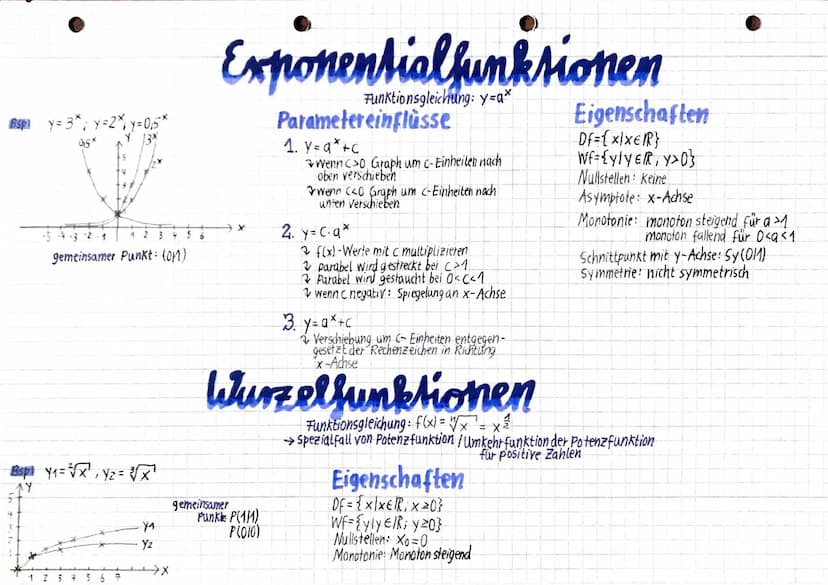 Exponentialfunktionen
Funktionsgleichung: y=aˣ
Bsp1 y=3ˣ; y=2ˣ; y=0,5⁻ˣ
0,5ˣ
y
3ˣ
2ˣ
5
4
3
2
-5 -4 -3 -2 -1 1 2 3 4 5 6
x
gemeinsamer Punkt: (0|1)
Parametereinflüsse
1. y=aˣ+c
↴ wenn c>0 Graph um c-Einheiten nach
oben verschieben
↴ wenn c<0 Graph um c-Einheiten nach
unten verschieben
2. y=c·aˣ
↴ f(x)-Werte mit c multiplizieren
↴ Parabel wird gestreckt bei c>1
↴ Parabel wird gestaucht bei 0<c<1
↴ wenn c negativ: Spiegelung an x-Achse
3. y=aˣ+c
↴ Verschiebung um c-Einheiten entgegen-
gesetzt der Rechenzeichen in Richtung
x-Achse
Eigenschaften
Df={x|x∈ℝ}
Wf={y|y∈ℝ, y>0}
Nullstellen: keine
Asymptote: x-Achse
Monotonie: monoton steigend für a>1
monoton fallend für 0<a<1
Schnittpunkt mit y-Achse: Sy(0|1)
Symmetrie: nicht symmetrisch
Wurzelfunktionen
Funktionsgleichung: f(x) = ⁿ√x = x^½
→ Spezialfall von Potenzfunktion / Umkehrfunktion der Potenzfunktion
für positive Zahlen
Bsp1 y1=²√x, y2=³√x
y
5
3
2
1
y1
y2
1 2 3 4 5 6 7
x
gemeinsamer
Punkt: P(1|1)
P(0|0)
Eigenschaften
Df={x|x∈ℝ, x≥0}
Wf={y|y∈ℝ; y≥0}
Nullstellen: x₀=0
Monotonie: Monoton steigend